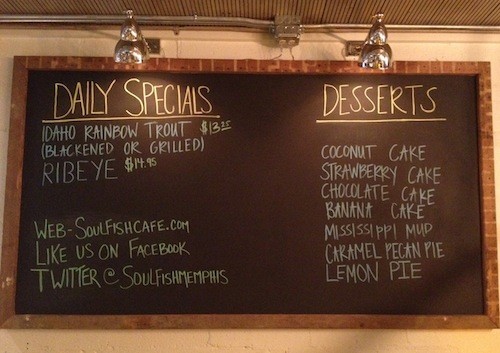 DAILY SPECIALS
IDAHO RAINBOW TROUT $13.25
(BLACKENED OR GRILLED)
RIBEYE $14.95
WEB-SOULFISHCAFE.COM
LIKE US ON FACEBOOK
TWITTER @SOULFISHMEMPHIS
DESSERTS
COCONUT CAKE
STRAWBERRY CAKE
CHOCOLATE CAKE
BANANA CAKE
MISSISSIPPI MUD
CARAMEL PECAN PIE
LEMON PIE